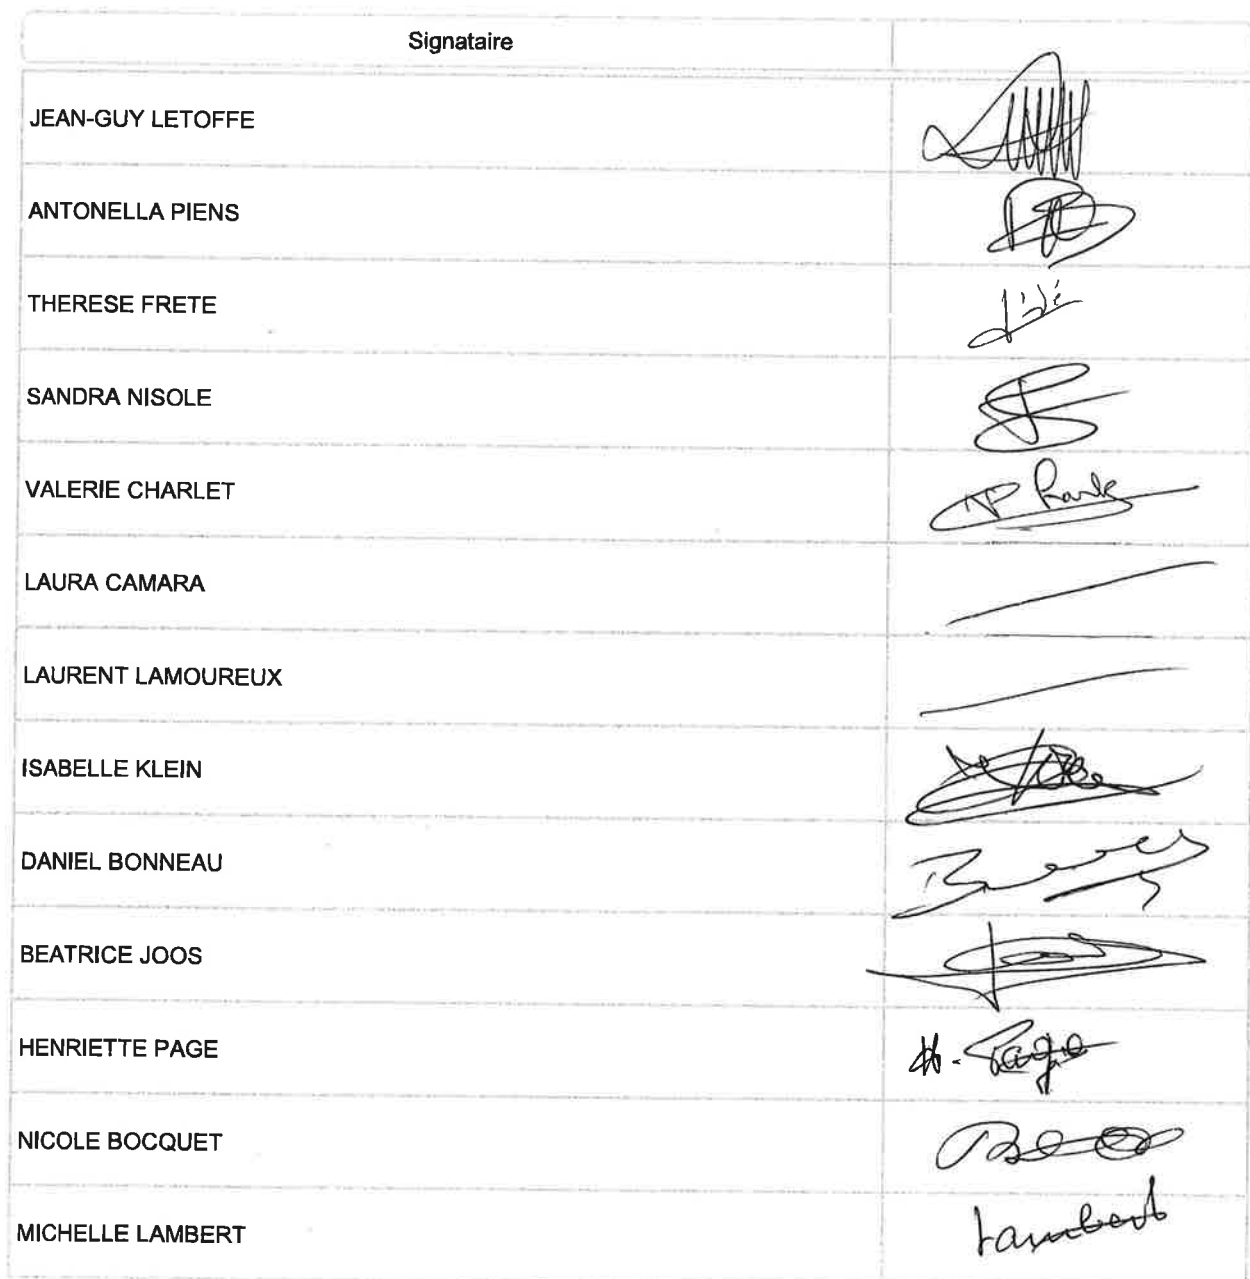 Signataire
JEAN-GUY LETOFFE
ANTONELLA PIENS
THERESE FRETE
SANDRA NISOLE
VALERIE CHARLET
LAURA CAMARA
LAURENT LAMOUREUX
ISABELLE KLEIN
DANIEL BONNEAU
BEATRICE JOOS
HENRIETTE PAGE H. Page
NICOLE BOCQUET
MICHELLE LAMBERT Lambert